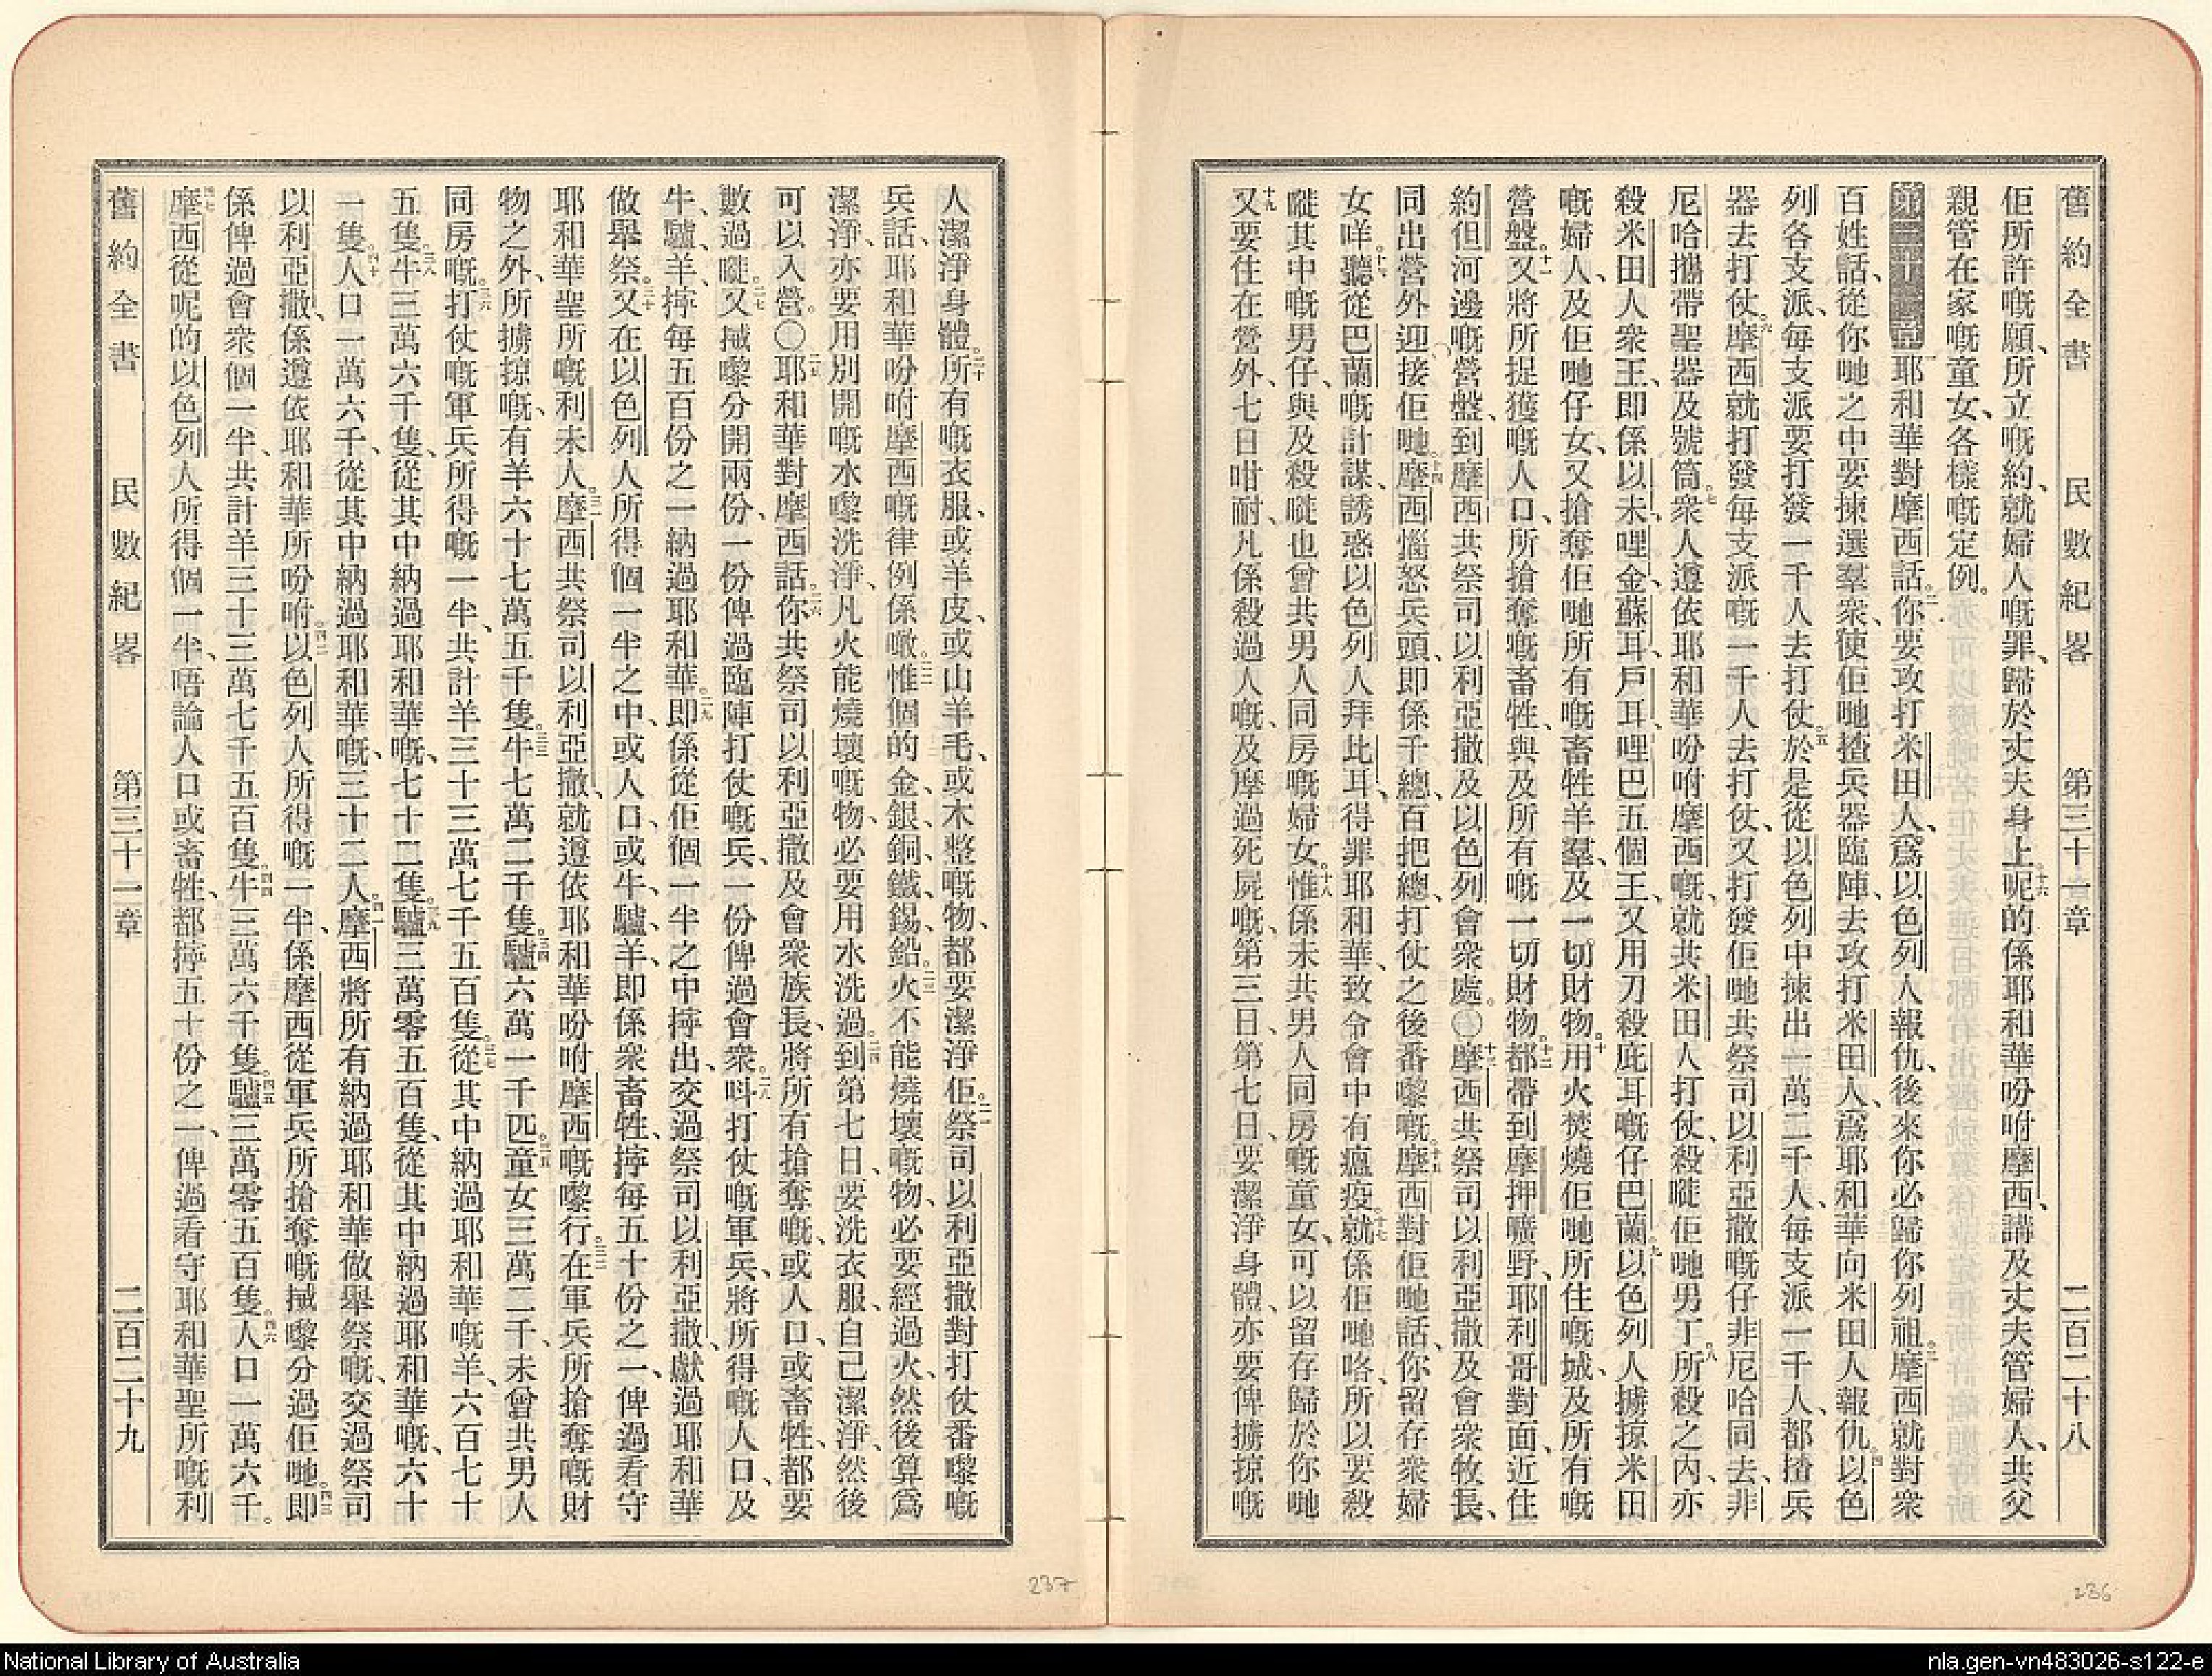 舊約全書　民數紀畧　第三十一章　二百二十八
佢所許嘅願、所立嘅約、就婦人嘅罪、歸於丈夫身上。十六呢的係耶和華吩咐摩西、講及丈夫管婦人、共父
親管在家嘅童女、各樣嘅定例。
第三十一章 一耶和華對摩西話。二你要攻打米田人、爲以色列人報仇、後來你必歸你列祖。三摩西就對衆
百姓話、從你哋之中要揀選羣衆、使佢哋揸兵器臨陣、去攻打米田人、爲耶和華向米田人報仇。四以色
列各支派、每支派要打發一千人去打仗。五於是從以色列中揀出一萬二千人、每支派一千人、都揸兵
器去打仗。六摩西就打發每支派嘅一千人去打仗、又打發佢哋共祭司以利亞撒嘅仔非尼哈同去、非
尼哈攜帶聖器及號筒。七衆人遵依耶和華吩咐摩西嘅、就共米田人打仗、殺嘥佢哋男丁。八所殺之內、亦
殺米田人衆王、即係以未、哩金、蘇耳、戶耳、哩巴五個王、又用刀殺庇耳嘅仔巴蘭。九以色列人擄掠米田
嘅婦人、及佢哋仔女、又搶奪佢哋所有嘅畜牲羊羣、及一切財物。十用火焚燒佢哋所住嘅城、及所有嘅
營盤。十一又將所捉獲嘅人口、所搶奪嘅畜牲、與及所有嘅一切財物。十二都帶到摩押曠野、耶利哥對面、近住
約但河邊嘅營盤、到摩西共祭司以利亞撒及以色列會衆處。〇十三摩西共祭司以利亞撒及會衆牧長、
同出營外迎接佢哋。十四摩西惱怒兵頭、即係千總、百把總、打仗之後番嚟嘅。十五摩西對佢哋話、你留存衆婦
女咩。十六聽從巴蘭嘅計謀、誘惑以色列人拜此耳、得罪耶和華、致令會中有瘟疫、就係佢哋咯。十七所以要殺
嘥其中嘅男仔、與及殺嘥也曾共男人同房嘅婦女。十八惟係未共男人同房嘅童女、可以留存歸於你哋
十九又要住在營外、七日咁耐、凡係殺過人嘅、及摩過死屍嘅、第三日、第七日、要潔淨身體、亦要俾擄掠嘅
人潔淨身體。二十所有嘅衣服、或羊皮、或山羊毛、或木整嘅物、都要潔淨佢。二一祭司以利亞撒對打仗番嚟嘅
兵話、耶和華吩咐摩西嘅律例係噉。二二惟個的金、銀、銅、鐵、錫、鉛。二三火不能燒壞嘅物、必要經過火、然後算爲
潔淨、亦要用別開嘅水嚟洗淨、凡火能燒壞嘅物、必要用水洗過。二四到第七日、要洗衣服、自己潔淨、然後
可以入營。〇二五耶和華對摩西話。二六你共祭司以利亞撒及會衆族長、將所有搶奪嘅、或人口、或畜牲、都要
數過嘥。二七又搣嚟分開兩份、一份俾過臨陣打仗嘅兵、一份俾過會衆。二八呌打仗嘅軍兵、將所得嘅人口、及
牛、驢、羊、揼每五百份之一、納過耶和華。二九即係從佢個一半之中揼出、交過祭司以利亞撒、獻過耶和華
做舉祭。三十又在以色列人所得個一半之中、或人口、或牛、驢、羊、即係衆畜牲、揼每五十份之一、俾過看守
耶和華聖所嘅利未人。三一摩西共祭司以利亞撒、就遵依耶和華吩咐摩西嘅嚟行。三二在軍兵所搶奪嘅財
物之外、所擄掠嘅、有羊六十七萬五千隻。三三牛七萬二千隻。三四驢六萬一千匹。三五童女三萬二千、未曾共男人
同房嘅。三六打仗嘅軍兵所得嘅一半、共計羊三十三萬七千五百隻。三七從其中納過耶和華嘅羊、六百七十
五隻。三八牛三萬六千隻、從其中納過耶和華嘅、七十二隻。三九驢三萬零五百隻、從其中納過耶和華嘅、六十
一隻。四十人口一萬六千、從其中納過耶和華嘅、三十二人。四一摩西將所有納過耶和華做舉祭嘅、交過祭司
以利亞撒、係遵依耶和華所吩咐。四二以色列人所得嘅一半、係摩西從軍兵所搶奪嘅搣嚟分過佢哋。四三即
係俾過會衆個一半、共計羊三十三萬七千五百隻。四四牛三萬六千隻。四五驢三萬零五百隻。四六人口一萬六千。
四七摩西從呢的以色列人所得個一半、唔論人口或畜牲、都揼五十份之一、俾過看守耶和華聖所嘅利
舊約全書　民數紀畧　第三十一章　二百二十九
237
236
National Library of Australia
nla.gen-vn483026-s122-e